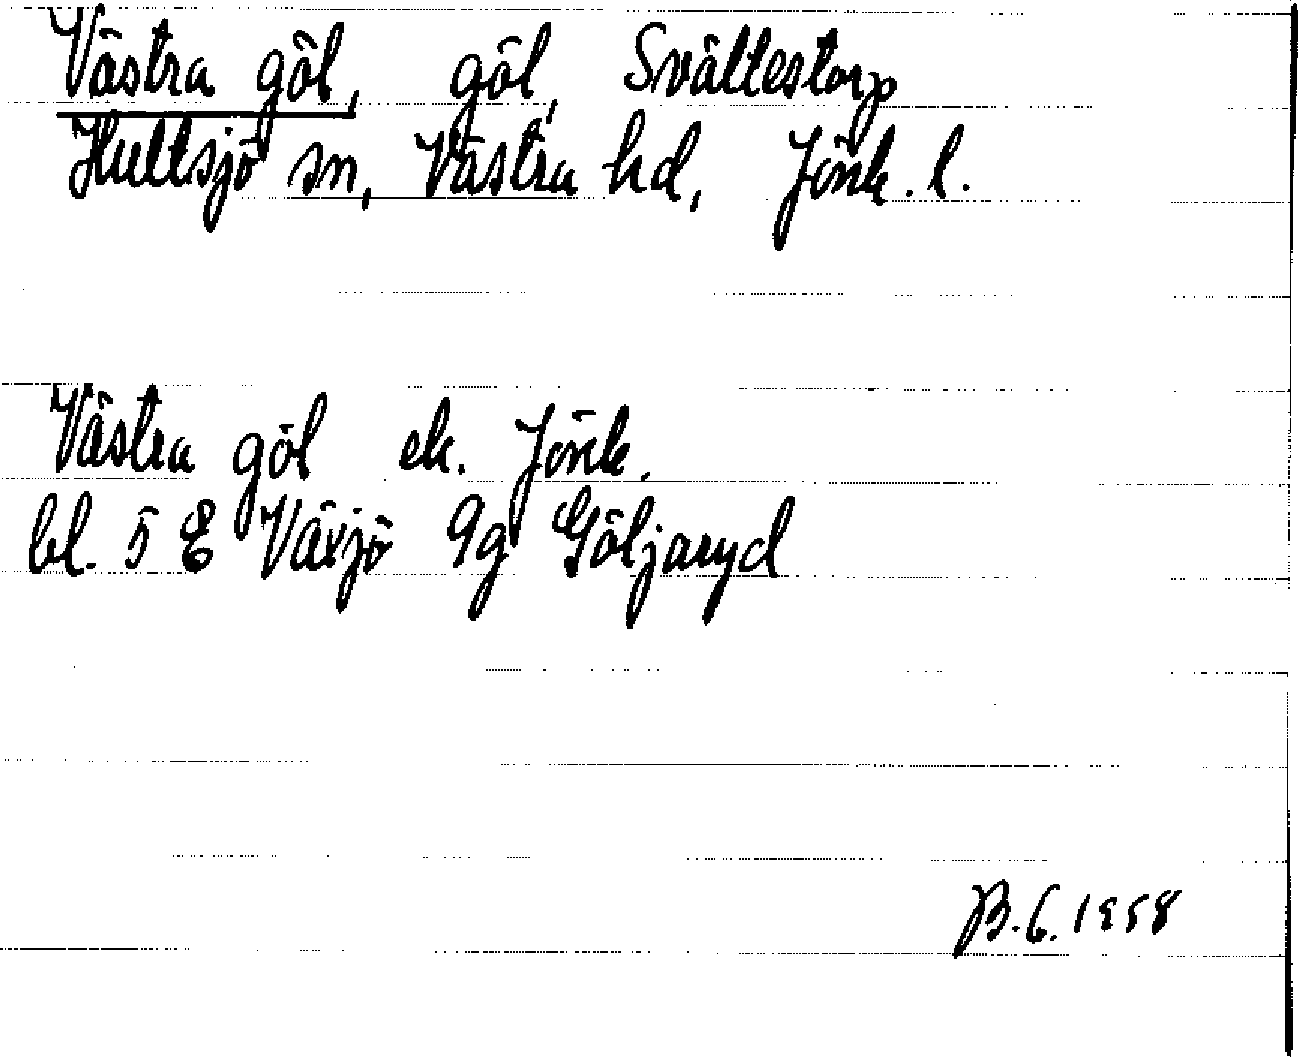 Västra göl, göl, Svältestorp
Hultsjö sn, Västra hd, Jönk. l.
Västra göl ek. Jönk.
bl. 5 E Växjö 9g Göljaryd
B.G. 1958